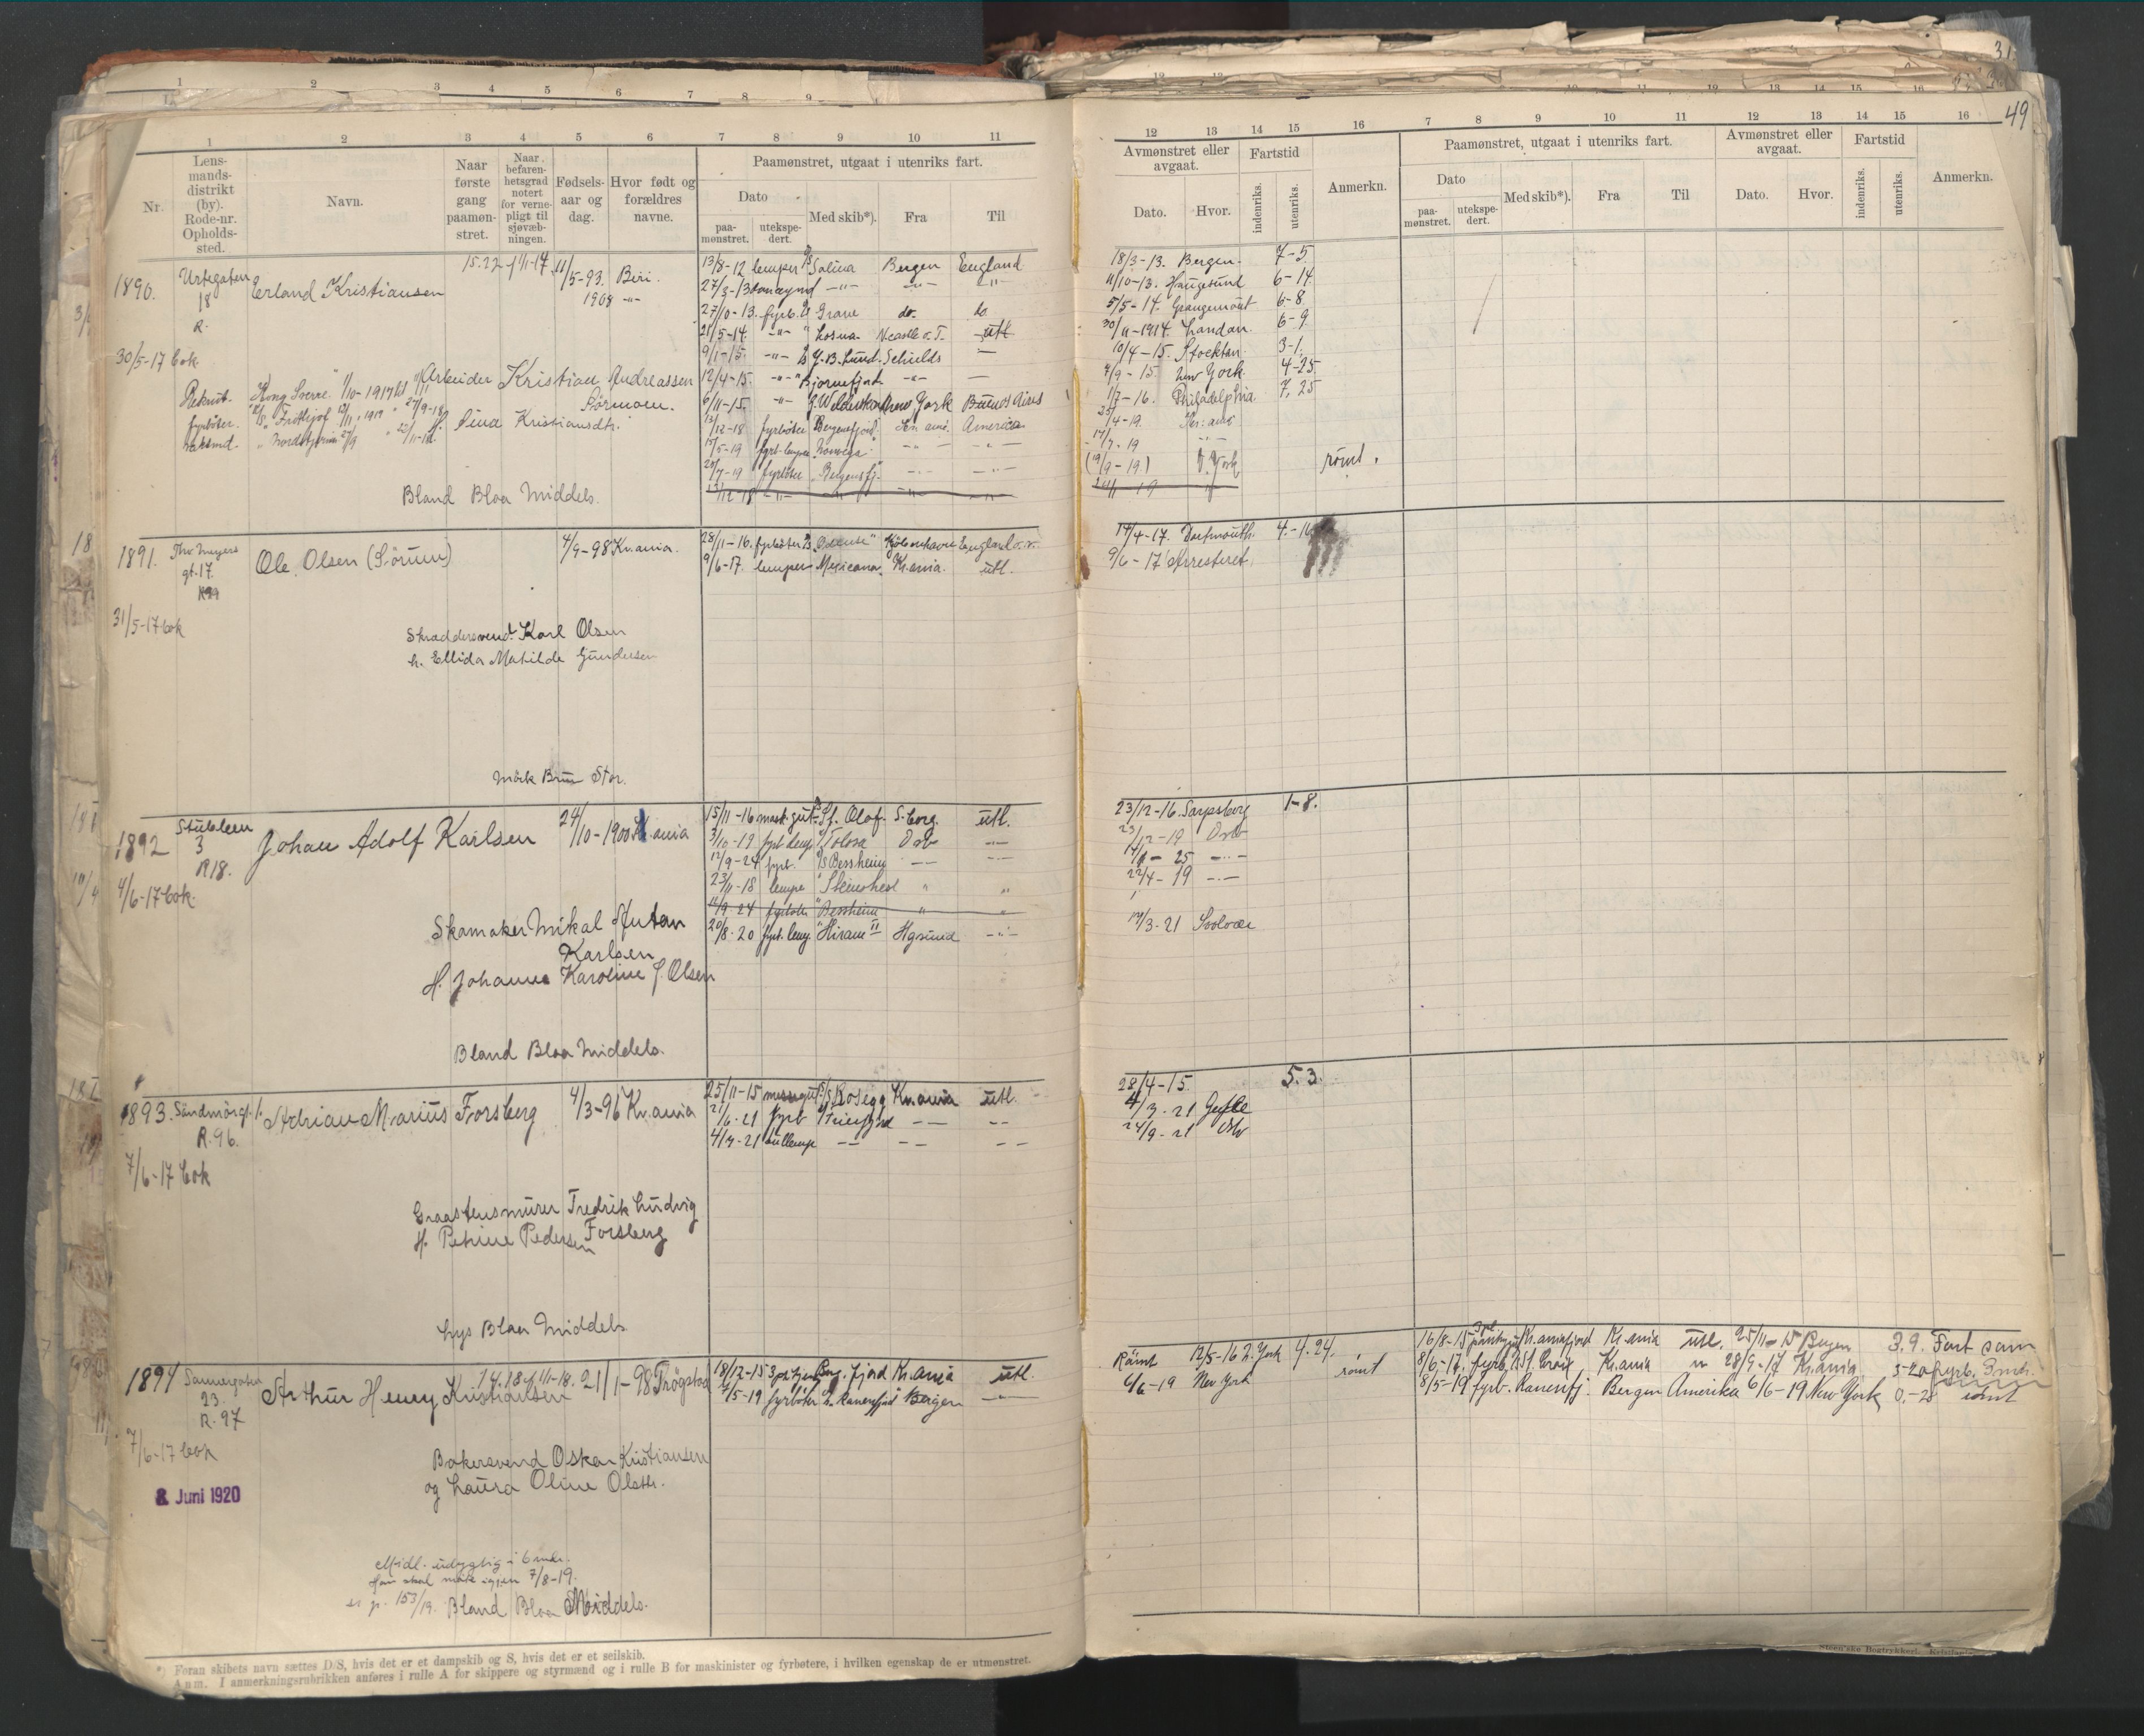 49
1 2 3 4 5 6 7 8 9 10 11
Nr.
Lens-
mands-
distrikt
(by).
Rode-nr.
Opholds-
sted.
Navn.
Naar
første
gang
paamøn-
stret.
Naar
befaren-
hetsgrad
notert
for verne-
pligt til
sjøvæb-
ningen.
Fødsels-
aar og
dag.
Hvor født og
forældres
navne.
Paamønstret, utgaat i utenriks fart.
Dato
paa-
mønstret.
utekspe-
dert.
Med skib*).
Fra
Til
12 13 14 15 16 7 8 9 10 11 12 13 14 15 16
Avmønstret eller
avgaat.
Dato.
Hvor.
Fartstid
indenriks.
utenriks.
Anmerkn.
Paamønstret, utgaat i utenriks fart.
Dato
paa-
mønstret.
utekspe-
dert.
Med skib*).
Fra
Til
Avmønstret eller
avgaat.
Dato.
Hvor.
Fartstid
indenriks.
utenriks.
Anmerkn.
1890. Urtegaten 18 R. Erland Kristiansen 11/5-93. Biri.
1908 -"-
30/5-17 bok
Arbeider Kristian Andreassen
Sörmoen.
Rekrut. Kong Sverre 1/10-1917
fyrböter. Fritthjof
H. Sina Kristiansdtr.
Bland Blaa Middels.
13/8-12 lemper D/S Salina Bergen England 18/3-13. Bergen. 7-5
27/3-13 donkeymd -"- -"- -"- 11/10-13. Haugesund 6-14
27/10-13. fyrb. Grane do. do 5/5-14. Grangemout 6-8
21/5-14. -"- Losna N.castle o.T. utl 30/11-1914. London. 6-9
9/1-15. -"- J.B. Lund. Schields — 10/4-15. Stockton 3-1
12/4-15. -"- Bjornefjord -"- — 4/9-15 New York. 4-25
6/11-15. -"- New York Buenos Aires 1/7-16. Philadelphia 7, 25
13/12-18 fyrböter Bergensfjord America 25/4-19
15/5-19 fyrb-lemper -"- -"- 17/7-19 -"-
20/7-19 fyrböter Bergensfj. -"- -"- (19/9-19) N. York römt.
13/12-18 -"- -"- -"- -"-
1891. Thv. Meyers gt. 17. R99 Ole Olsen (Sörum) 4/9-98 Kr.ania.
31/5-17 bok
28/11-16. fyrböter D/S "Odense" Kjöbenhavn England o.v. 14/4-17. Dartmouth. 4.-16
9/6-17. lemper Mexicana. Kr.ania. utl. 9/6-17 Arresteret.
Skraddersvend Karl Olsen
h. Ellida Matilde Gundersen
Mörk Brun Stor.
1892 Stubleen 3 R18. Johan Adolf Karlsen 24/10-1900 Kr.ania
4/6-17 bok.
15/11-16 mask.gut D/S St. Olaf S.borg. utl. 23/12-16. Sarpsborg 1-8.
3/10-19 fyrb.lemp "Tolosa Oslo -"- 23/12-19 Oslo
12/9-24 fyrb. D/S Bessheim -"- -"- -"-
23/11-18 lemper "Steinshest " " 22/4-19 -"-
12/9-24 fyrböter "Bessheim " "
20/8-20 fyrb.lemp. "Hiram II Hgsund -"- 19/3-21 Svolvær
Skomaker Mikal Antan
Karlsen
H. Johanne Karoline J. Olsen
Bland Blaa Middels.
1893. Søndmørgt. 1. R.96. Adrian Marius Forsberg 4/3-96 Kr.ania
7/6-17 bok
25/11-15 messegut D/S Rosegg Kr.ania utl. 28/4-15. 5.3.
21/6-21 fyrb D/S — — 4/7-21 Gefle
4/7-21 kullemp — — — 24/9-21 Oslo
Graastensmurer Fredrik Ludvig
Forsberg
H. Petrine Pedersen
Lys Blaa Middels
1894 Sannergaten 23. R.97 Arthur Henry Kristiansen 21/1-98 Trögstad
7/6-17 bok
8. Juni 1920
18/12-15 Berg.fjord Kr.ania utl. Römt 12/5-16 N. York 4.24.
7/5-19 fyrböter D/S Ranenfjord Bergen -"- 6/6-19 New York römt
16/8-15 Kr.aniafjord Kr.ania utl. 25/11-15 Bergen 3.9. Fart som
8/6-17. fyrb. D/S St. Croix, Kr.ania " 28/9-17 Kr.ania 3-20 fyrb. 3 mdr.
8/5-19 fyrb. Ranenfj. Bergen Amerika 6/6-19 New York 0.-28 römt
Bakersvend Oskar Kristiansen
og Laura Oline Olsdtr.
Midl. udygtig i 6 mdr.
Han skal möte igjen 7/8-19.
153/19. Bland Blaa Middels.
*) Foran skibets navn sættes D/S, hvis det er et dampskib og S, hvis det er et seilskib.
Anm. I anmerkningsrubrikken anføres i rulle A for skippere og styrmænd og i rulle B for maskinister og fyrbøtere, i hvilken egenskap de er utmønstret.